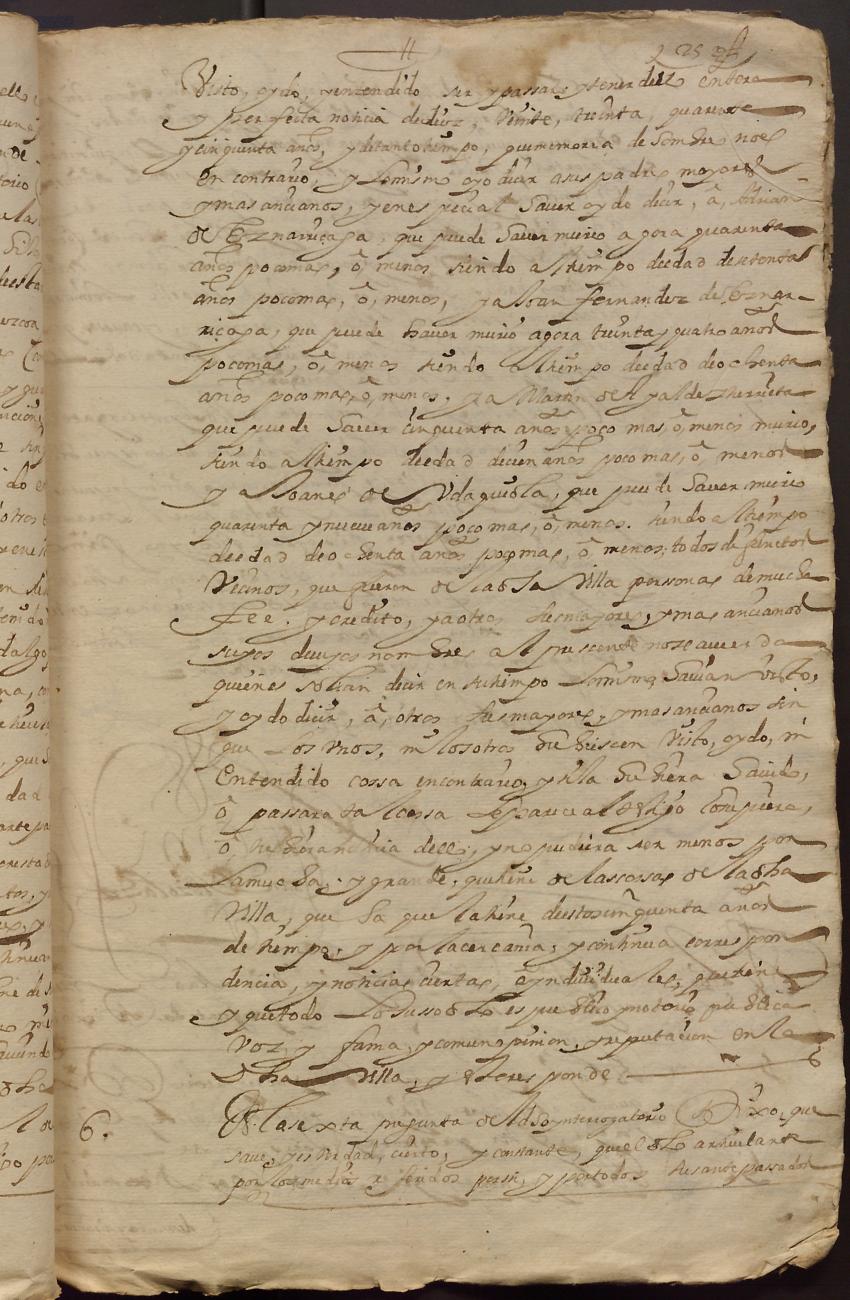 Visto, oydo, y entendido ser y passar, y tener dello entera
y perfecta noticia de diez, veinte, treinta, quarenta
y cinquenta años, y de tanto tiempo, que memoria de hombre no es
en contrario, y lo mismo oyo dezir a sus padres mayores
y mas ancianos, y en especial haver oydo decir, â, Adrian
de Eznarriçaga, que puede haver murio agora quarenta
años poco mas, ô, menos, siendo al tiempo de edad de setenta
años poco mas, ô, menos, y a Joan fernandez de Eznar-
riçaga, que puede haver murio agora treinta y quatro años
poco mas, ô, menos siendo al tiempo de edad de ochenta
años poco mas, ô, menos, y a Martin de
que puede haver cinquenta años poco mas, ô, menos murio,
siendo al tiempo de edad de cien años poco mas, ô, menos
y a Joanes de Vdaguiola, que puede haver murio
quarenta y nueue años poco mas, ô, menos. siendo al tiempo
de edad de ochenta años poco mas, ô, menos, todos difuntos
Vecinos, que fueron de la dha Villa personas de mucha
fee. y credito, y a otros sus mayores, y mas ancianos
suyos cuyos nombres al presente no se acuerda
quienes solian decir en su tiempo lo mismo havian visto,
y oydo decir, â, otros sus mayores, y mas ancianos sin
que los vnos, ni los otros hubiesen visto, oydo, ni
entendido cossa en contrario, y si la hubiera Savido,
ô passara tal cossa lo parecia al testigo lo supiera,
ô tubiera noticia dello, y no pudiera ser menos por
la mucha, y grande, que tiene de las cossas de la dha
Villa, que ha que la tiene de estos cinquenta años
de tiempo, y por la cercania, y continua corres pon
dencia, y noticias ciertas, e yndividuales, que tiene
y que todo lo susodho es publico y notorio publica
voz, y fama, y comun opinion, y reputacion en la
Dha Villa, y esto responde
6. A la sexta pregunta del dho ynterrogatorio Dixo, que
save, y es verdad, cierto, y constante, que el dho articulante
por los medios referidos por si, y por todos sus antepassados